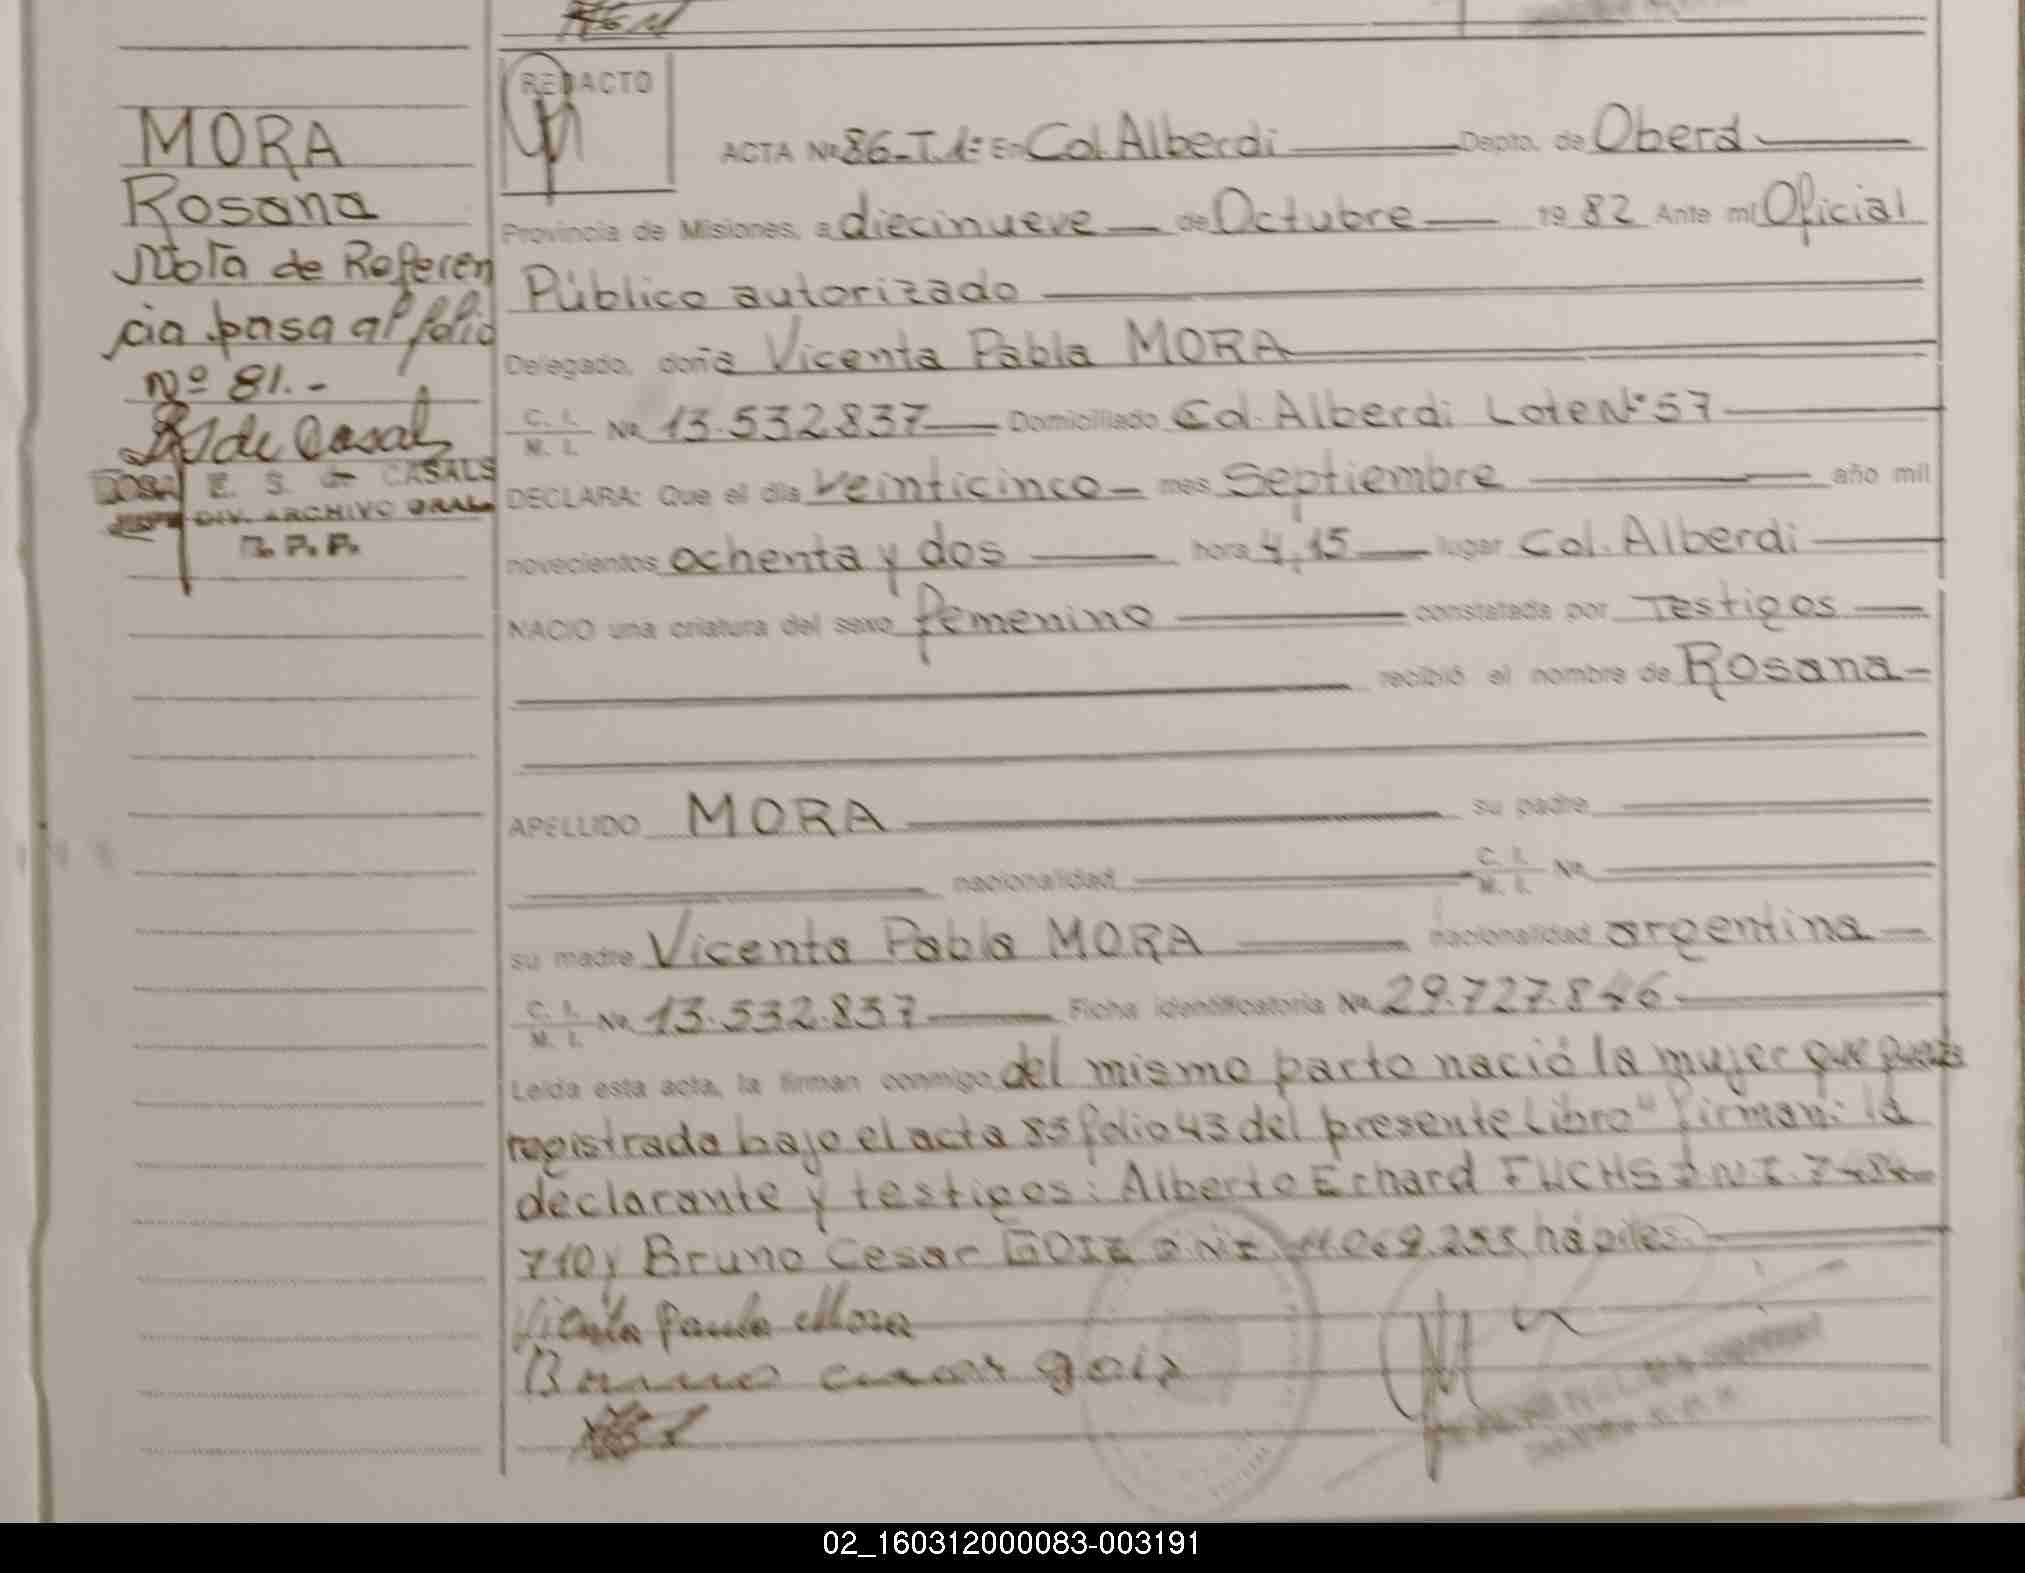 MORA
Rosana
Nota de Referen
cia pasa al folio
Nº 81.-
de Casals
E. S. de CASALS
DIV. ARCHIVO GRAL.
R. P. P.
REDACTO
ACTA Nº 86-T.1º En Col. Alberdi Depto. de Oberá
Provincia de Misiones, a diecinueve de Octubre 19 82 Ante mí Oficial
Público autorizado
Delegado, doña Vicenta Pabla MORA
C. I. M. I. Nº 13.532.837 Domiciliado Col. Alberdi Lote Nº 57
DECLARA: Que el día veinticinco mes Septiembre año mil
novecientos ochenta y dos hora 4,15 lugar Col. Alberdi
NACIO una criatura del sexo femenino constatada por Testigos
recibió el nombre de Rosana
APELLIDO MORA su padre
nacionalidad C. I. M. I. Nº
su madre Vicenta Pabla MORA nacionalidad argentina
C. I. M. I. Nº 13.532.837 Ficha identificatoria Nº 29.727.846
Leída esta acta, la firman conmigo del mismo parto nació la mujer que queda
registrada bajo el acta 85 folio 43 del presente Libro" firman: la
declarante y testigos: Alberto Erhard FUCHS D.N.I. 7.484.
710 y Bruno Cesar GOIZ D.N.I. 11.069.255 hábiles.
Vicenta Paula Mora
Bruno cesar goiz
02_160312000083-003191